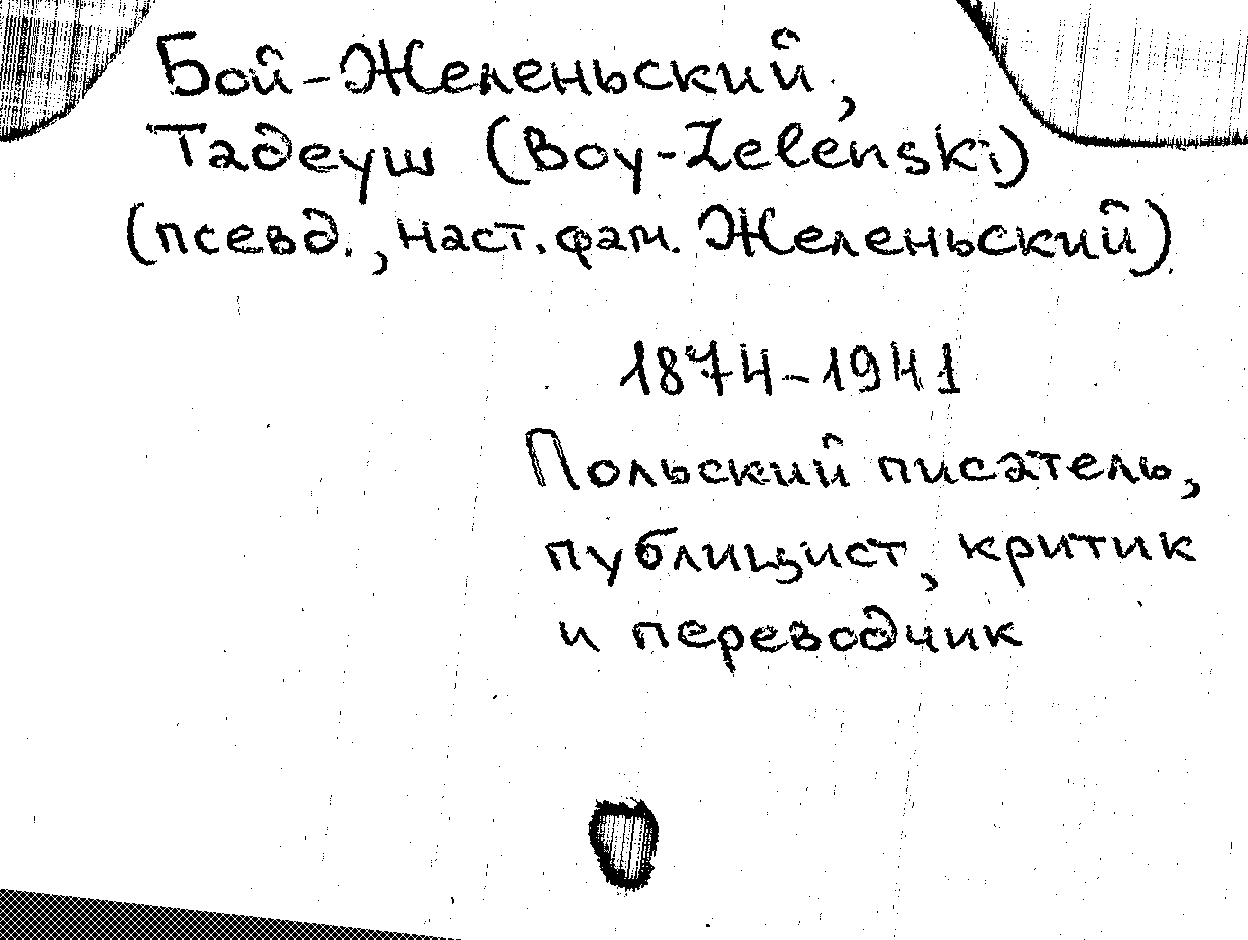 Бой-Желеньский,
Тадеуш (Boy-Zeleński)
(псевд., наст. фам. Желеньский)
1874-1941
Польский писатель,
публицист, критик
и переводчик